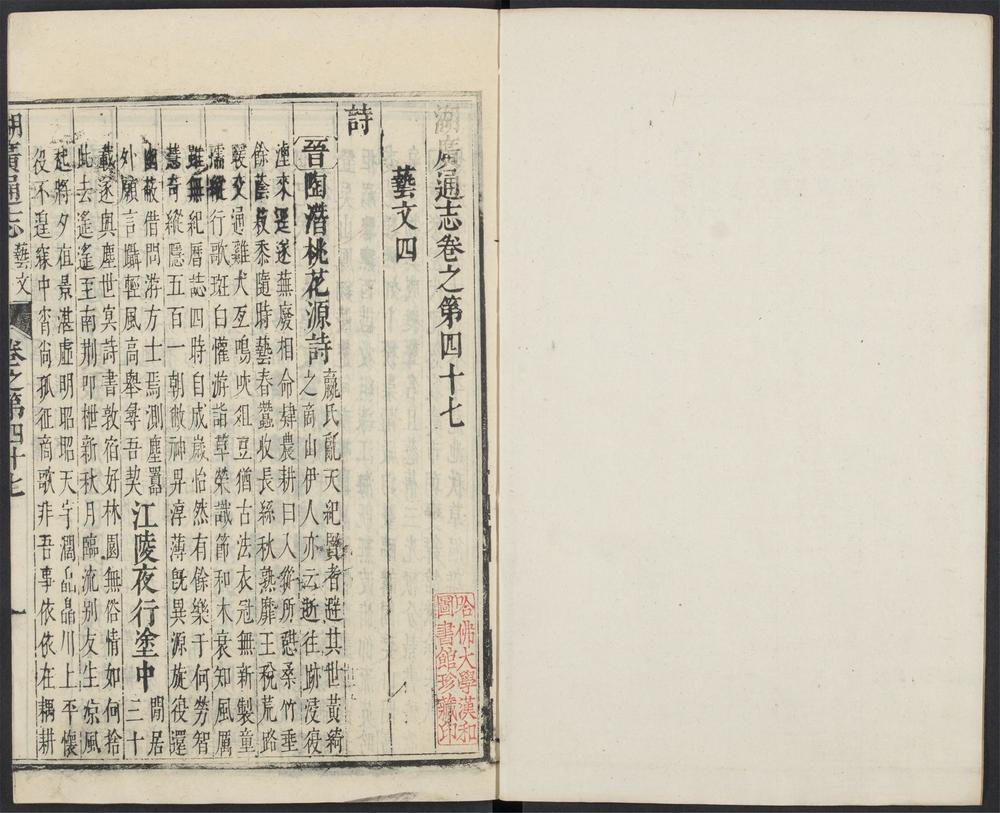 湖廣通志卷之第四十七
藝文四
詩
晉陶潛桃花源詩
嬴氏亂天紀賢者避其世黃綺
之商山伊人亦云逝往跡浸復
湮來逕遂蕪廢相命肆農耕日入從所憇桑竹垂
餘蔭菽黍隨時藝春蠶收長絲秋熟靡王稅荒路
曖交通雞犬互鳴吠俎豆猶古法衣冠無新製童
孺縱行歌斑白懽游詣草榮識節和木衰知風厲
雖無紀曆誌四時自成歲怡然有餘樂于何勞智
慧奇縱隱五百一朝敞神界淳薄旣異源旋復還
幽蔽借問游方士焉測塵囂
外願言躡輕風高舉尋吾契
江陵夜行塗中
閒居
三十
載遂與塵世冥詩書敦宿好林園無俗情如何捨
此去遙遙至南荆叩枻新秋月臨流別友生凉風
起將夕夜景湛虛明昭昭天宇濶皛皛川上平懷
役不遑寐中宵尙孤征商歌非吾事依依在耦耕
湖廣通志
藝文
卷之第四十七
一
哈佛大學漢和
圖書館珍藏印